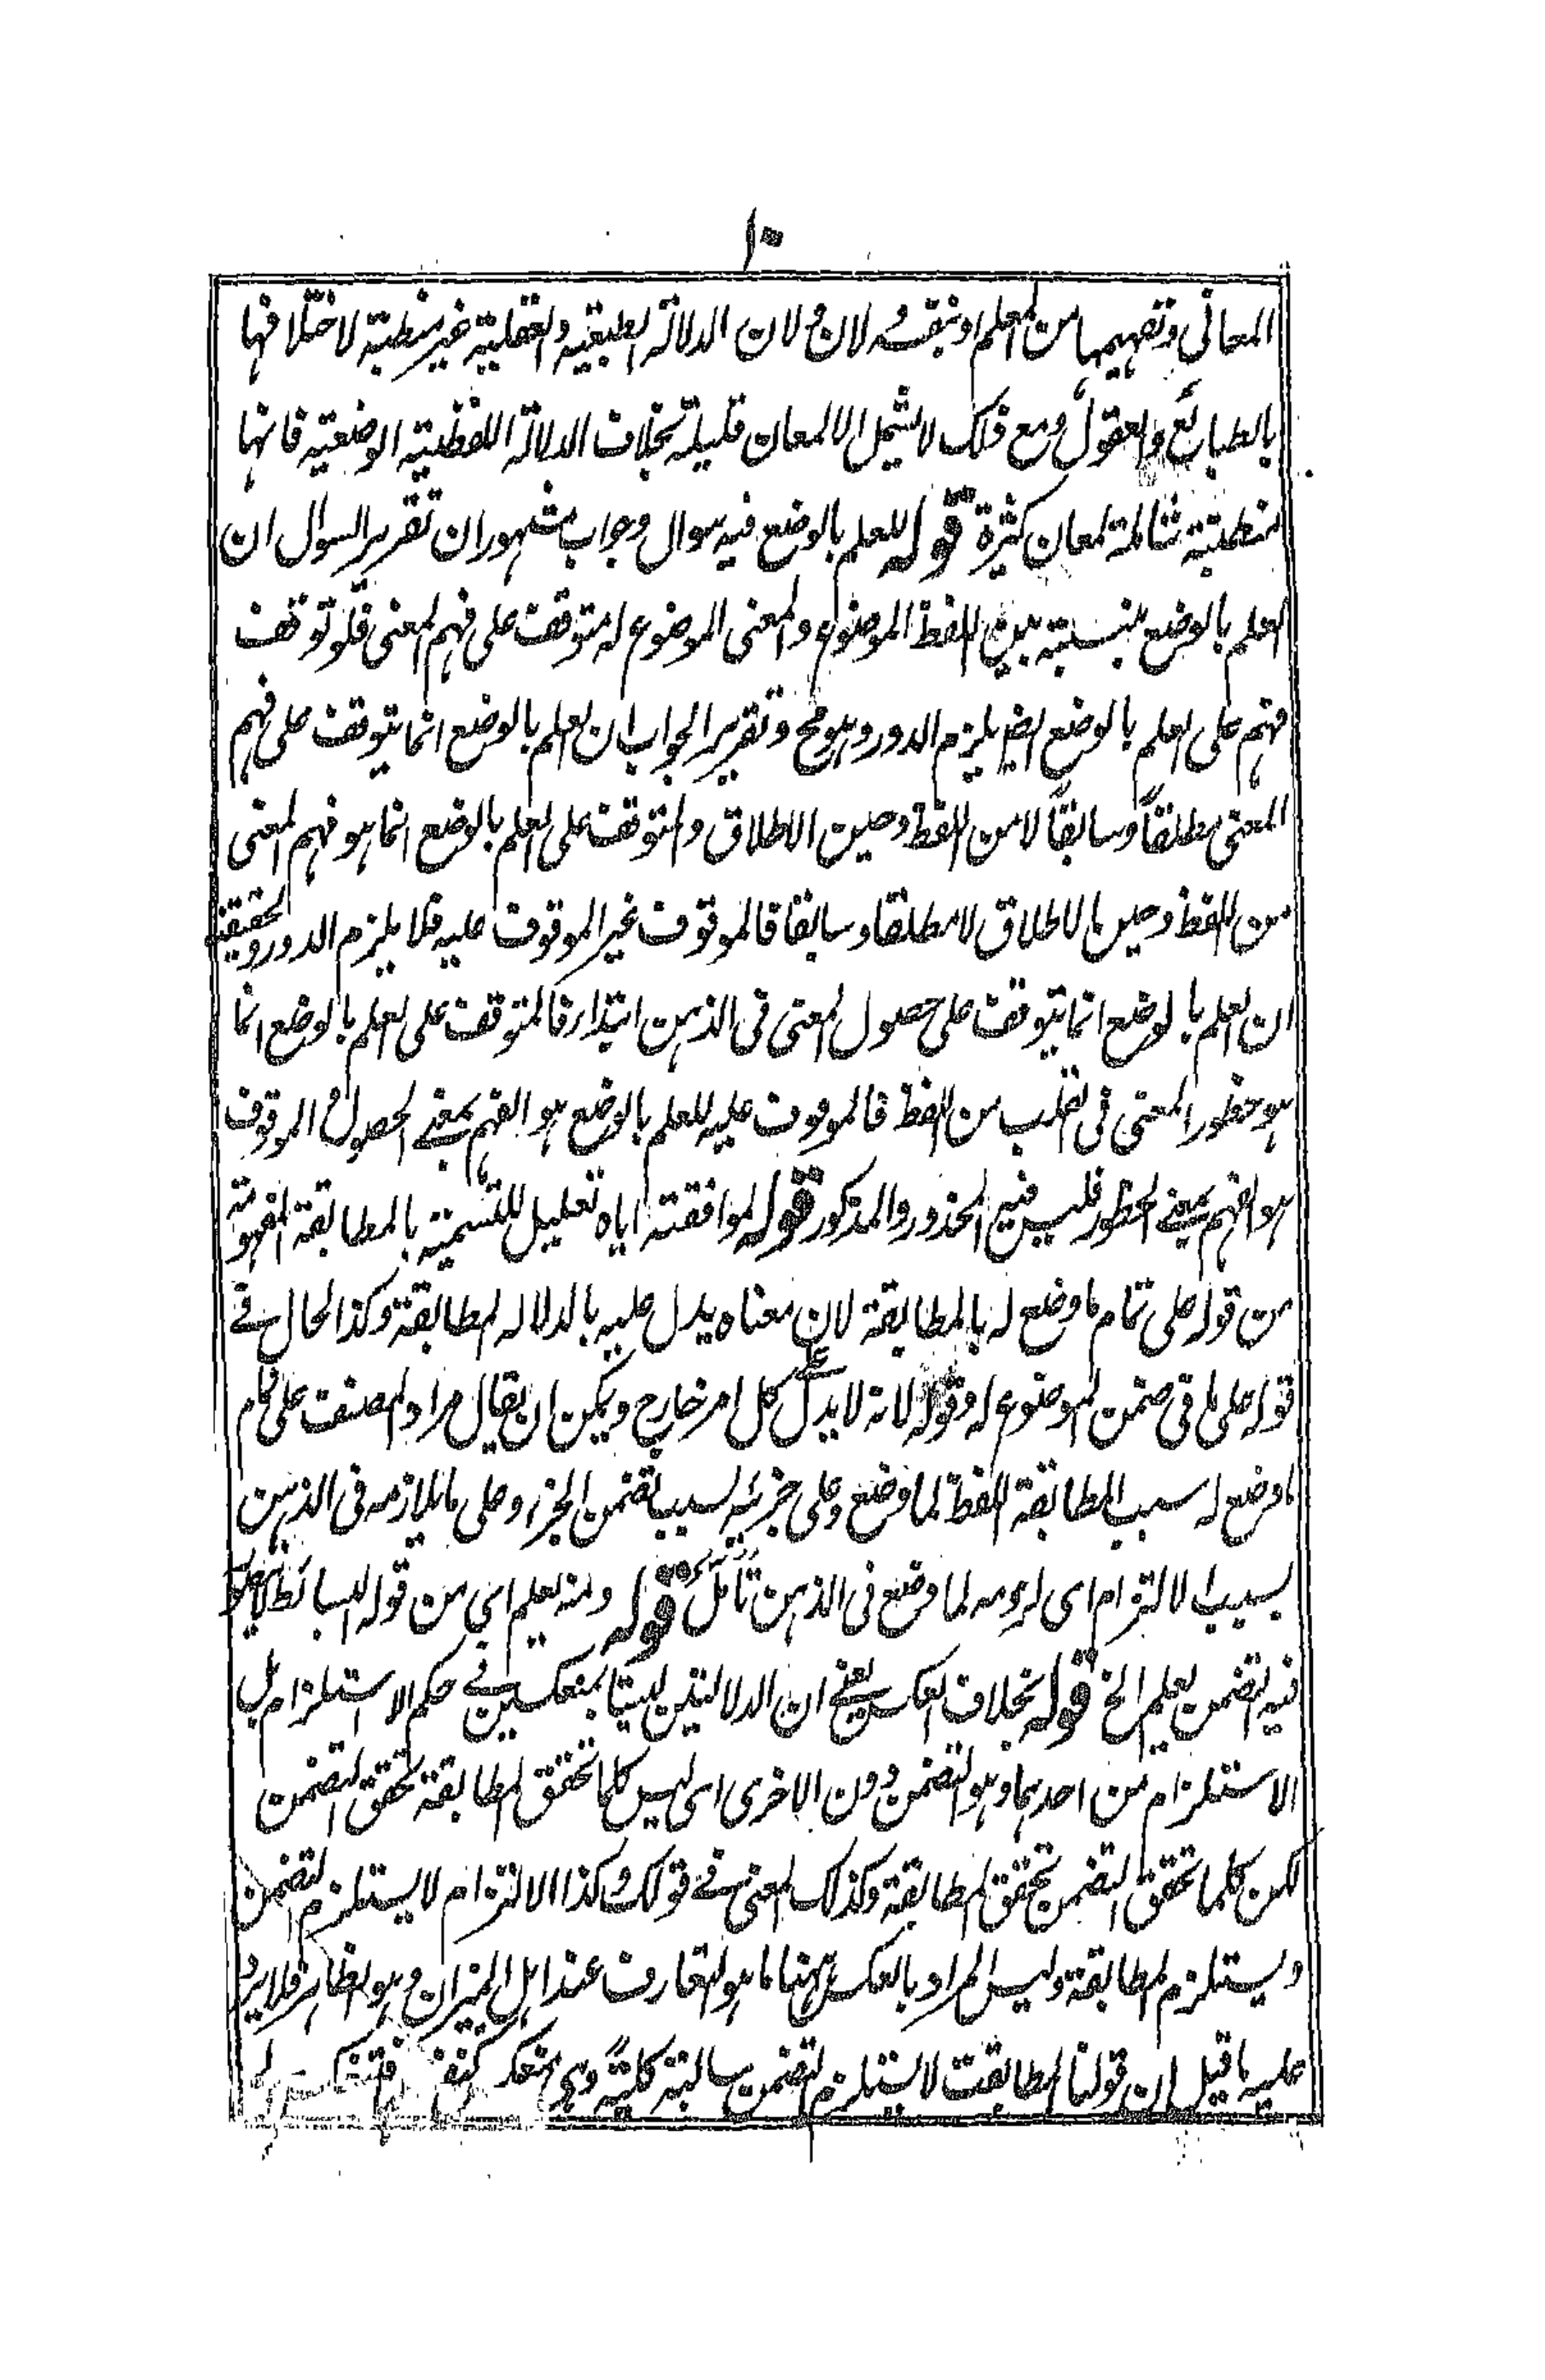 ١٠
المعانی وتفهیمها من المعلم او لان الدلالة الطبعیة والعقلیة غیر منضبطة لاختلافها
بالطبائع والعقول ومع ذلک لا تشمل الا لمعان قلیلة بخلاف الدلالة اللفظیة الوضعیة فانها
منضبطة شاملة لمعان کثیرة قوله للعلم بالوضع فیه سوال وجواب مشهوران تقریر السوال ان
العلم بالوضع لنسبة بین اللفظ الموضوع والمعنی الموضوع له متوقف علی فهم المعنی فلو توقف
فهم علی العلم بالوضع ایض یلزم الدور وهو مح وتقریر الجواب ان العلم بالوضع انما یتوقف علی فهم
المعنی مطلقاً وسابقاً لا من اللفظ وحین الاطلاق والمتوقف علی العلم بالوضع انما هو فهم المعنی
من اللفظ وحین الاطلاق لا مطلقا وسابقا فالموقوف غیر الموقوف علیه فلا یلزم الدور وتحقیقه
ان العلم بالوضع انما یتوقف علی حصول المعنی فی الذهن ابتداء فالمتوقف علی العلم بالوضع انما
هو خطور المعنی فی القلب من اللفظ فالموقوف علیه للعلم بالوضع هو الفهم بمعنی الحصول والموقوف
هو الفهم بمعنی الخطور فلیس فیه المحذور المذکور قوله لموافقته ایاه تعلیل للتسمیة بالمطابقة المفهومة
من قوله علی تمام ما وضع له بالمطابقة لان معناه یدل علیه بالدلاله المطابقة وکذا الحال فی
قوله علی ما فی ضمن الموضوع له وقوله لانه لا یدل علی کل امر خارج ویمکن ان یقال مراد المصنف علی تمام
ما وضع له سبب المطابقة اللفظ لما وضع وعلی جزئه بسبب تضمن الجزء وعلی ما یلازمه فی الذهن
بسبب الالتزام ای لزومه لما وضع فی الذهن تأمل قوله ومنه یعلم ای من قوله البسائط
فیه تضمن یعلم الخ قوله بخلاف العکس یعنی ان الدلالتین لیستا بمنعکسین فی حکم الاستلزام بل
الاستلزام من احدهما وهو التضمن دون الاخری ای لیس کلما تحقق المطابقة تحقق التضمن
لکن کلما تحقق التضمن تحقق المطابقة وکذلک المعنی فی قولک وکذا الالتزام لا یستلزم التضمن
ویستلزم المطابقة ولیس المراد بالعکس ههنا ما هو المتعارف عند اهل المیزان وهو الظاهر فلا یرد
علیه ما قیل ان قولنا المطابقت لا یستلزم التضمن سالبة کلیة وهی تنعکس کنفسها